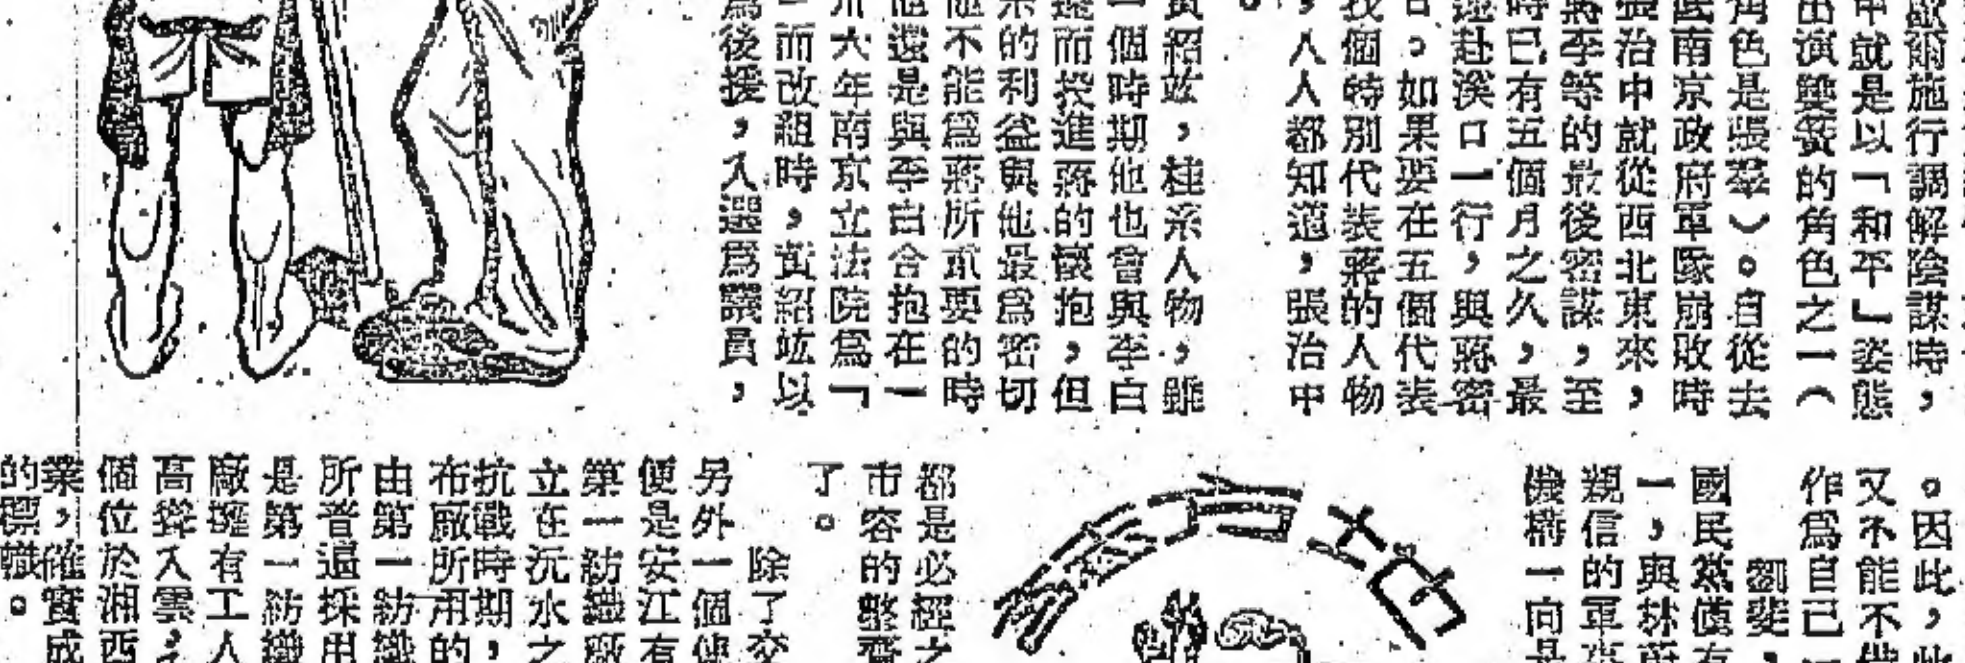 歐爾施行調解陰謀時，
中就是以「和平」姿態
出演雙簧的角色之一（
角色是張羣）。自從去
底南京政府軍隊崩敗時
張治中就從西北東來，
蔣李等的最後密謀，至
時已有五個月之久，最
遄赴溪口一行，與蔣密
。如果要在五個代表
個特別代表蔣的人物
，人人都知道，張治中
。
黃紹竑，桂系人物，雖
一個時期他也曾與李白
而投進蔣的懷抱，但
系的利益與他最爲密切
他不能爲蔣所重要的時
他還是與李白合抱在一
六年南京立法院爲「
而改組時，黃紹竑以
爲後援，入選爲議員，
。因此，此
又不能不
作爲自己
劉斐，
國民黨僅有
一，與林蔚
親信的軍事
機構一向是
都是必經之
市容的整齊
了。
除了交
另外一個使
便是安江有
第一紡織廠
立在沅水之
抗戰時期，
布廠所用的
由第一紡織
所普遍採用
是第一紡織
廠擁有工人
高聳入雲，
個位於湘西
業，確實成
的標幟。